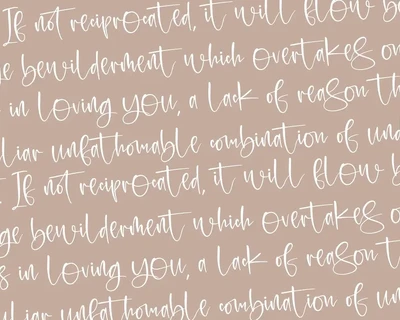 If not reciprocated, it will flow b
ge bewilderment which overtakes on
s in loving you, a lack of reason th
uliar unfathomable combination of und
If not reciprocated, it will flow b
ge bewilderment which overtakes o
s in loving you, a lack of reason t
uliar unfathomable combination of und